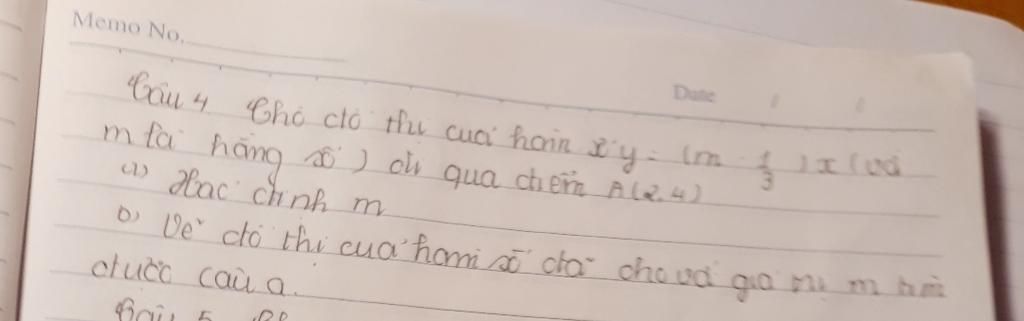 Memo No.
Date / /
Câu 4 Cho đồ thị của hàm số y = (m - 1/3)x (với
m là hằng số) đi qua điểm A(2,4)
a) Xác định m
b) Vẽ đồ thị của hàm số đã cho với giá trị m tìm
được câu a.